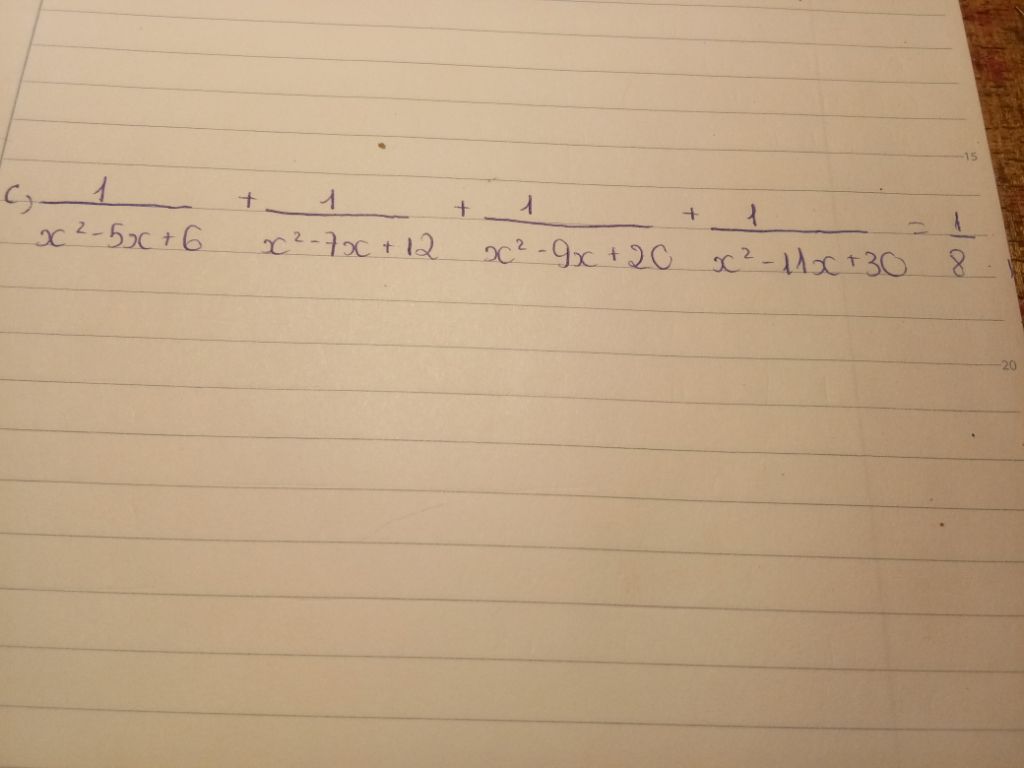 15
c, 1/(x² - 5x + 6) + 1/(x² - 7x + 12) + 1/(x² - 9x + 20) + 1/(x² - 11x + 30) = 1/8
20